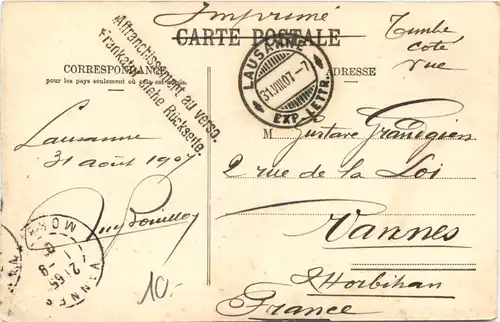 Imprimé
CARTE POSTALE
Timbré
côté
vue
Affranchissement au verso.
Frankatur siehe Rückseite.
CORRESPONDANCE
pour les pays seulement où cela est
ADRESSE
LAUSANNE
31.VIII.07.-7
EXP. LETTR.
Lausanne
31 août 1907
M Gustave
2 rue de la Loi
Vannes
Morbihan
France
VANNES
MORBIHAN
10.-